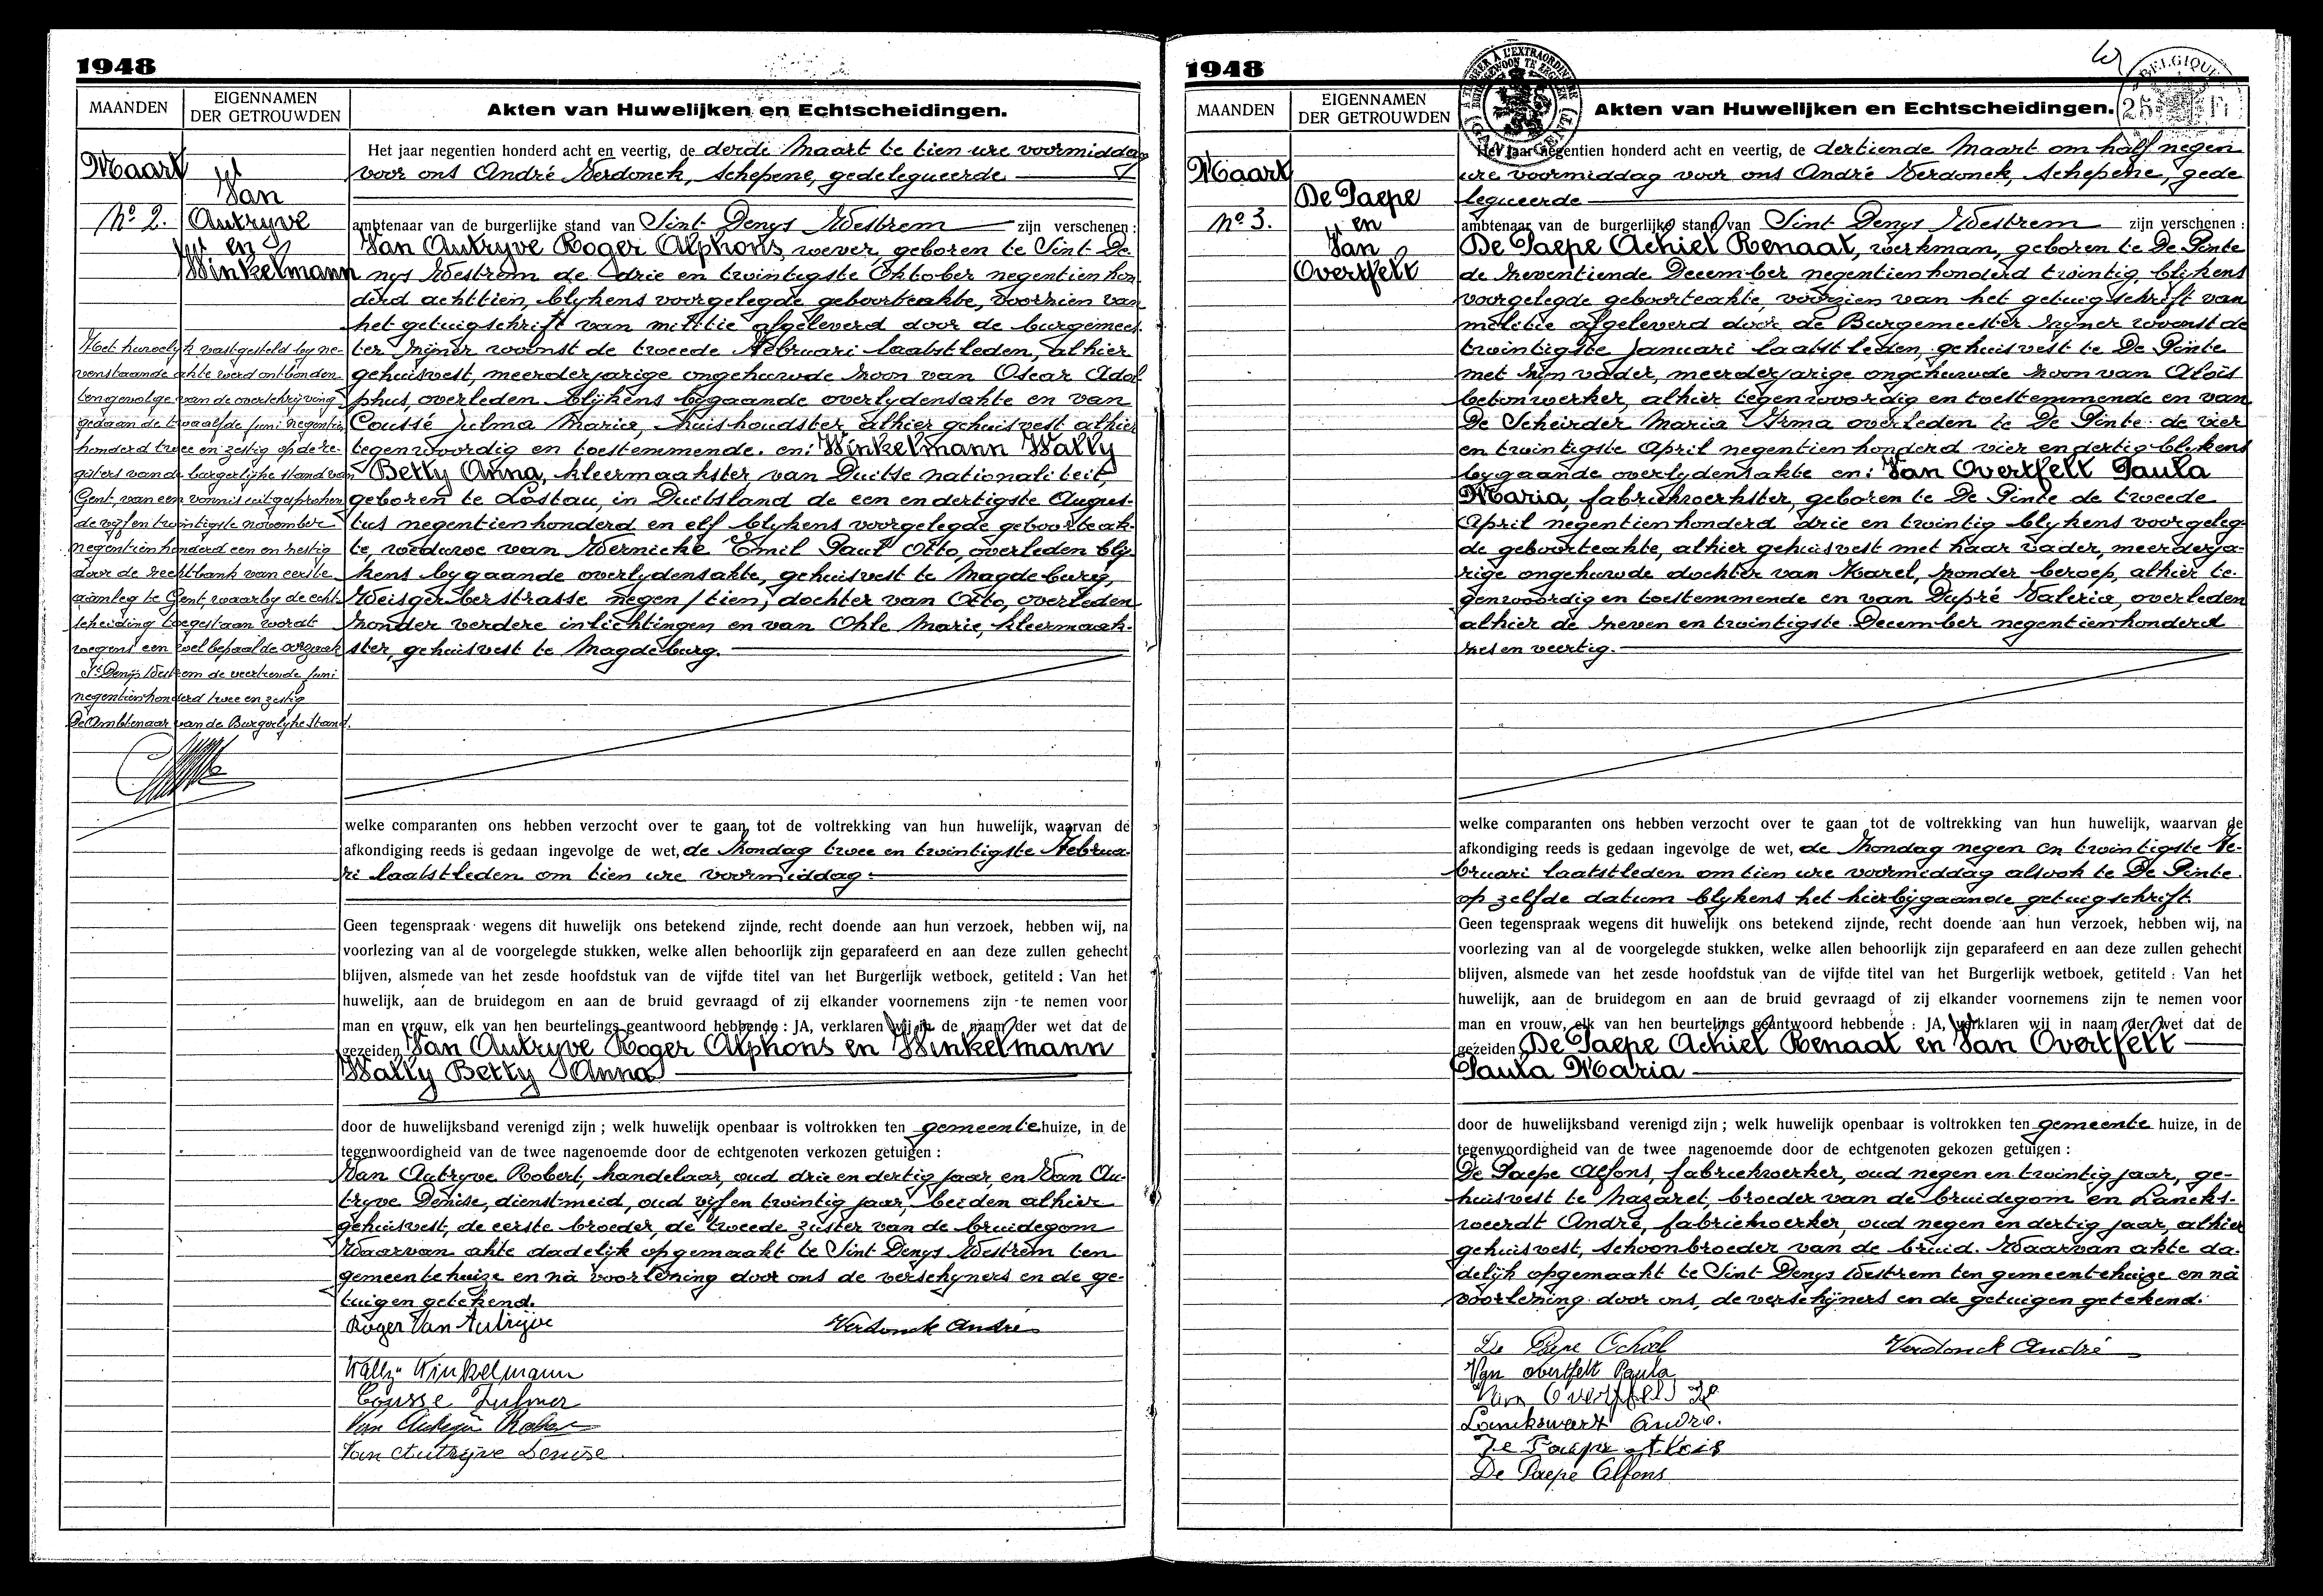 1948
MAANDEN
EIGENNAMEN
DER GETROUWDEN
Akten van Huwelijken en Echtscheidingen.
Maart
No 2.
Van
Autryve
en
Winkelmann
Het huwelyk vastgesteld by ne-
venstaande akte werd ontbonden
tengevolge van de overschrijving
gedaan de twaalfde Juni negentien
honderd twee en zestig op de re-
gisters van de burgerlijke stand van
Gent, van een vonnis uitgesproken
de vyf en twintigste november
negentien honderd een en zestig
door de rechtbank van eerste
aanleg te Gent, waarby de echt-
scheiding toegestaan wordt
wegens een wel bepaalde oorzaak
St Denijs Westrem de veertiende Juni
negentien honderd twee en zestig
De Ambtenaar van de Burgerlyke Stand.
Het jaar negentien honderd acht en veertig, de derde Maart te tien ure voormiddag
voor ons André Verdonck, Schepene, gedelegueerde
ambtenaar van de burgerlijke stand van Sint Denys Westrem zijn verschenen :
Van Autryve Roger Alphons, wever, geboren te Sint De-
nys Westrem de drie en twintigste Oktober negentien hon-
derd achttien, blykens voorgelegde geboorteakte, voorzien van
het getuigschrift van militie afgeleverd door de burgemees-
ter zyner woonst de tweede Februari laatstleden, alhier
gehuisvest, meerderjarige ongehuwde zoon van Oscar Adol-
phus, overleden blijkens bygaande overlydensakte en van
Coussé Julma Maria, huishoudster, alhier gehuisvest alhier
tegenwoordig en toestemmende. en: Winkelmann Wally
Betty Anna, kleermaakster, van Duitse nationaliteit,
geboren te Lostau, in Duitsland de een en dertigste Augus-
tus negentienhonderd en elf blykens voorgelegde geboorteak-
te, weduwe van Wernicke Emil Paul Otto, overleden bly-
kens bygaande overlydensakte, gehuisvest te Magdeburg,
Weisgerberstrasse negen/tien, dochter van Otto, overleden
zonder verdere inlichtingen en van Ohle Marie, kleermaak-
ster, gehuisvest te Magdeburg.
welke comparanten ons hebben verzocht over te gaan tot de voltrekking van hun huwelijk, waarvan de
afkondiging reeds is gedaan ingevolge de wet, de Zondag twee en twintigste Februa-
ri laatstleden om tien ure voormiddag.
Geen tegenspraak wegens dit huwelijk ons betekend zijnde, recht doende aan hun verzoek, hebben wij, na
voorlezing van al de voorgelegde stukken, welke allen behoorlijk zijn geparafeerd en aan deze zullen gehecht
blijven, alsmede van het zesde hoofdstuk van de vijfde titel van het Burgerlijk wetboek, getiteld : Van het
huwelijk, aan de bruidegom en aan de bruid gevraagd of zij elkander voornemens zijn te nemen voor
man en vrouw, elk van hen beurtelings geantwoord hebbende : JA, verklaren wij in de naam der wet dat de
gezeiden Van Autryve Roger Alphons en Winkelmann
Wally Betty Anna
door de huwelijksband verenigd zijn ; welk huwelijk openbaar is voltrokken ten gemeentehuize, in de
tegenwoordigheid van de twee nagenoemde door de echtgenoten verkozen getuigen :
Van Autryve Robert, handelaar, oud drie en dertig jaar, en Van Au-
tryve Denise, dienstmeid, oud vyf en twintig jaar, beiden alhier
gehuisvest, de eerste broeder, de tweede zuster van de bruidegom
Waarvan akte dadelijk opgemaakt te Sint Denys Westrem ten
gemeentehuize en nà voorlezing door ons de verschyners en de ge-
tuigen getekend.
Roger Van Autrijve
Verdonck André
Wally Winkelmann
Cousse Julma
Van Autryve Denise.
1948
MAANDEN
EIGENNAMEN
DER GETROUWDEN
Akten van Huwelijken en Echtscheidingen.
BELGIQUE
25 Fr
Maart
No 3.
De Paepe
en
Van
Overtfelt
Het jaar negentien honderd acht en veertig, de dertiende Maart om half negen
ure voormiddag voor ons André Verdonck, Schepene, gede
legueerde
ambtenaar van de burgerlijke stand van Sint Denys Westrem zijn verschenen :
De Paepe Achiel Renaat, werkman, geboren te De Pinte
de zeventiende December negentienhonderd twintig, blykens
voorgelegde geboorteakte, voorzien van het getuigschrift van
militie afgeleverd door de Burgemeester zyner woonst de
twintigste Januari laatstleden, gehuisvest te De Pinte
met zyn vader, meerderjarige ongehuwde zoon van Aloïs
betonwerker, alhier tegenwoordig en toestemmende en van
De Scheirder Maria Irma overleden te De Pinte de vier
en twintigste April negentienhonderd vier en dertig blykens
bygaande overlydensakte en: Van Overtfelt Paula
Maria, fabriekwerkster, geboren te De Pinte de tweede
April negentienhonderd drie en twintig blykens voorgeleg-
de geboorteakte, alhier gehuisvest met haar vader, meerderja-
rige ongehuwde dochter van Karel, zonder beroep, alhier te-
genwoordig en toestemmende en van Dupré Valerie, overleden
alhier de zeven en twintigste December negentienhonderd
zes en veertig.
welke comparanten ons hebben verzocht over te gaan tot de voltrekking van hun huwelijk, waarvan de
afkondiging reeds is gedaan ingevolge de wet, de Zondag negen en twintigste Fe-
bruari laatstleden om tien ure voormiddag alsook te De Pinte
op zelfde datum blykens het hierbijgaande getuigschrift.
Geen tegenspraak wegens dit huwelijk ons betekend zijnde, recht doende aan hun verzoek, hebben wij, na
voorlezing van al de voorgelegde stukken, welke allen behoorlijk zijn geparafeerd en aan deze zullen gehecht
blijven, alsmede van het zesde hoofdstuk van de vijfde titel van het Burgerlijk wetboek, getiteld : Van het
huwelijk, aan de bruidegom en aan de bruid gevraagd of zij elkander voornemens zijn te nemen voor
man en vrouw, elk van hen beurtelings geantwoord hebbende : JA, verklaren wij in naam der wet dat de
gezeiden De Paepe Achiel Renaat en Van Overtfelt
Paula Maria
door de huwelijksband verenigd zijn ; welk huwelijk openbaar is voltrokken ten gemeente huize, in de
tegenwoordigheid van de twee nagenoemde door de echtgenoten gekozen getuigen :
De Paepe Alfons, fabriekwerker, oud negen en twintig jaar, ge-
huisvest te Nazaret, broeder van de bruidegom en Lancks-
weerdt André, fabriekwerker, oud negen en dertig jaar, alhier
gehuisvest, schoonbroeder van de bruid. Waarvan akte da-
delijk opgemaakt te Sint Denys Westrem ten gemeentehuize en nà
voorlezing door ons, de verschijners en de getuigen getekend.
Verdonck André
Van overtfelt Paula
De Paepe Alfons